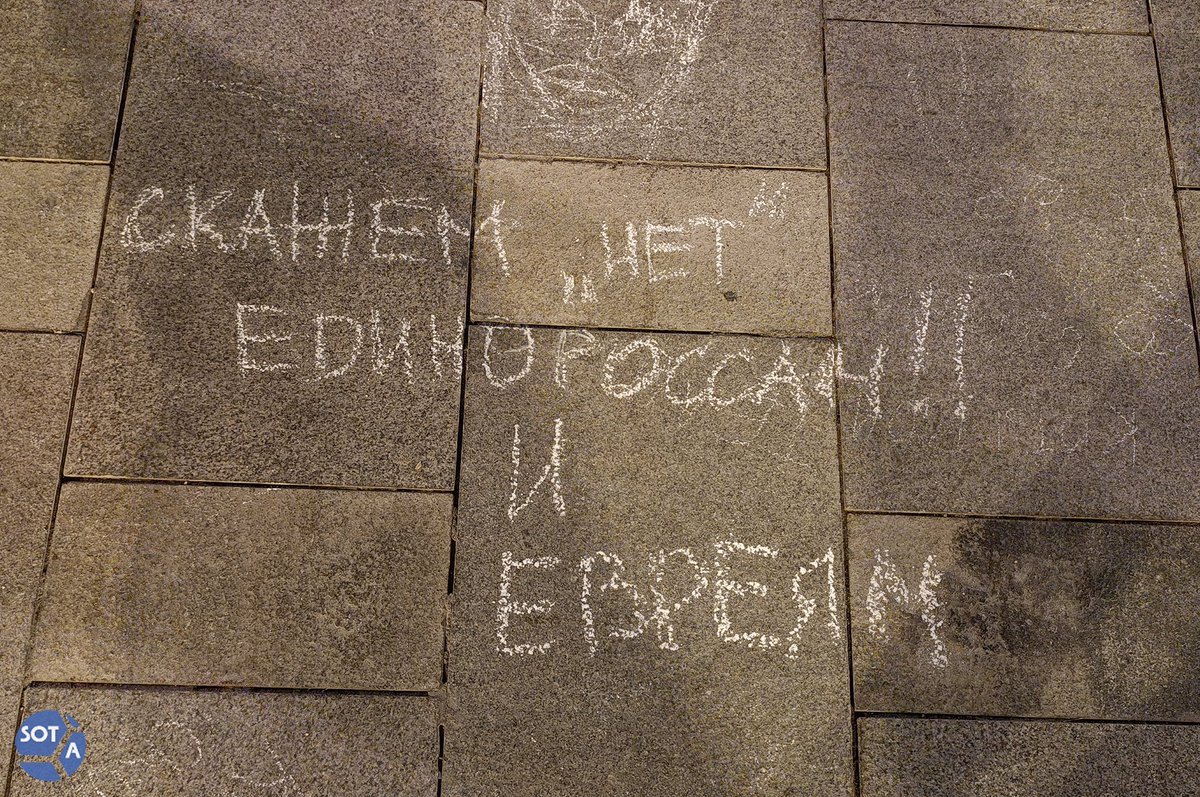 СКАЖЕМ „НЕТ"
ЕДИНОРОССАМ!!
И
ЕВРЕЯМ
SOTA